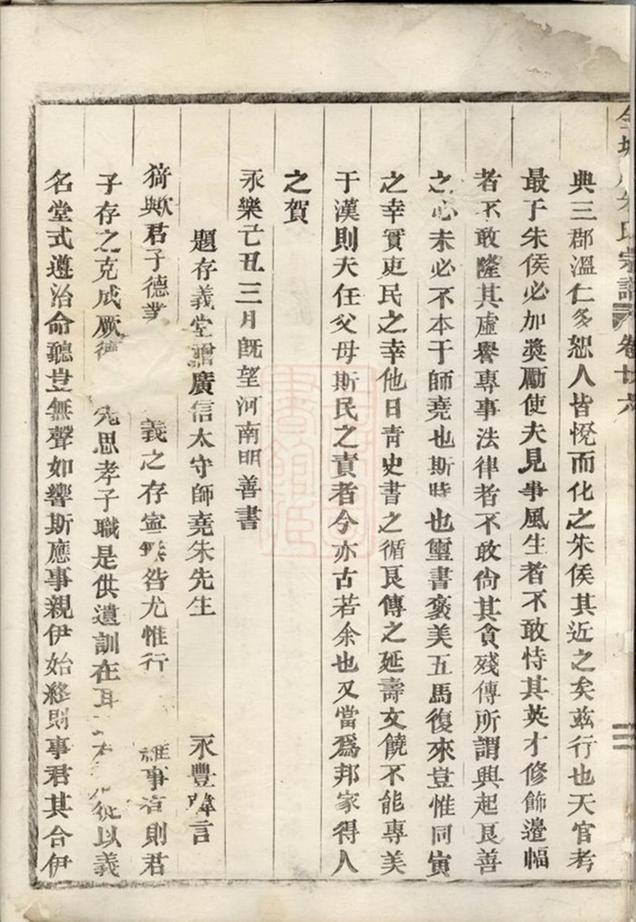 朱氏宗譜 卷廿六
典三郡溫仁多恕人皆悅而化之朱侯其近之矣茲行也天官考
最于朱侯必加獎勵使夫見事風生者不敢恃其英才修飾邊幅
者不敢隆其虛譽專事法律者不敢尙其貪殘傳所謂興起良善
之心未必不本于師堯也斯時也璽書褒美五馬復來豈惟同寅
之幸實吏民之幸他日靑史書之循良傳之延壽文饒不能專美
于漢則夫任父母斯民之責者今亦古若余也又當爲邦家得人
之賀
永樂乙丑三月旣望河南明善書
題存義堂贈廣信太守師堯朱先生 永豐 言
猗歟君子德 義之存寧 咎尤惟行 事 則君
子存之克成厥德 先思孝子職是供遺訓在耳 從以義
名堂式遵治命聽豈無聲如響斯應事親伊始終則事君其合伊